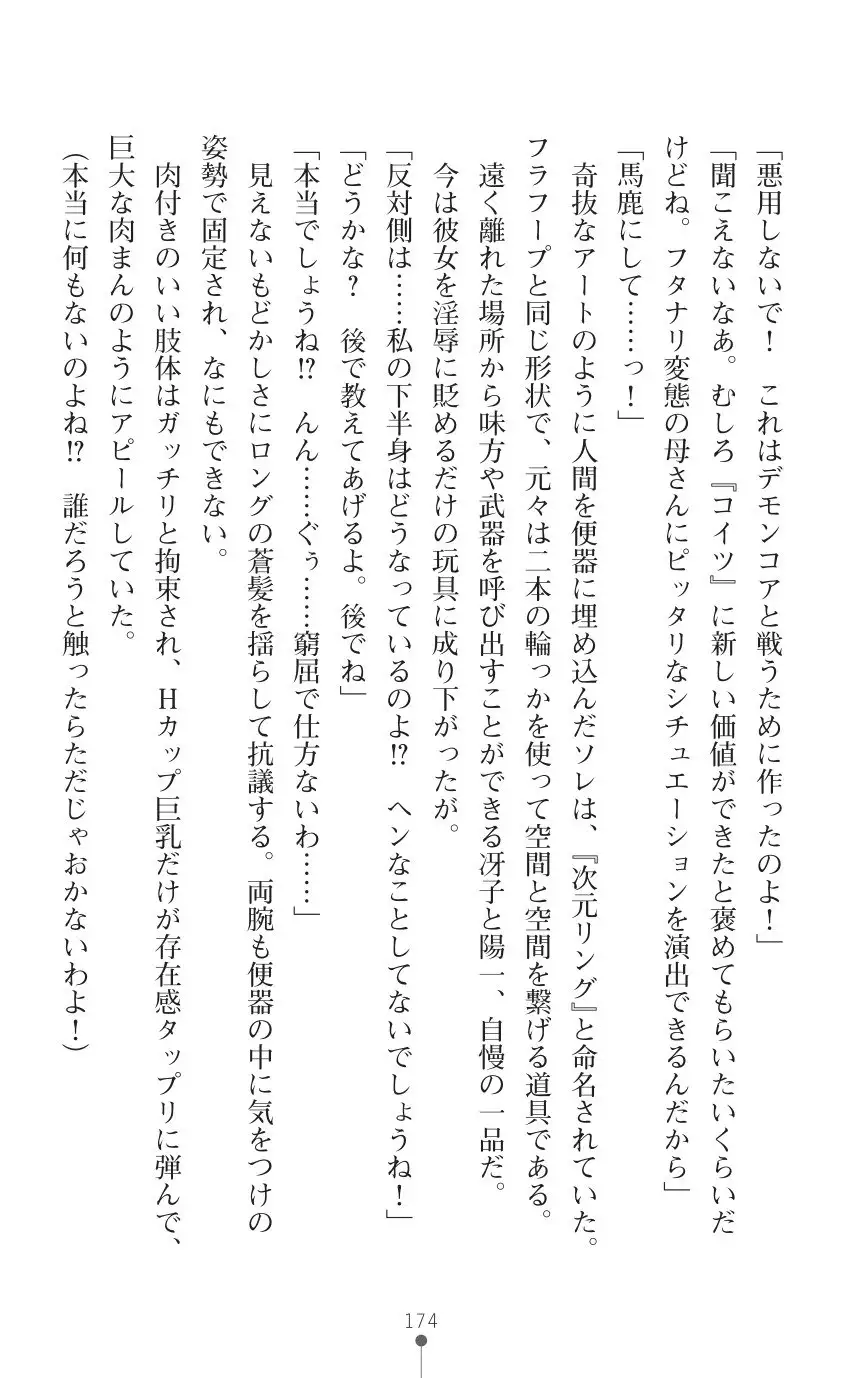 「悪用しないで！　これはデモンコアと戦うために作ったのよ！」
「聞こえないなあ。むしろ『コイツ』に新しい価値ができたと褒めてもらいたいくらいだ
けどね。フタナリ変態の母さんにピッタリなシチュエーションを演出できるんだから」
「馬鹿にして……っ！」
　奇抜なアートのように人間を便器に埋め込んだソレは、『次元リング』と命名されていた。
フラフープと同じ形状で、元々は二本の輪っかを使って空間と空間を繋げる道具である。
　遠く離れた場所から味方や武器を呼び出すことができる冴子と陽一、自慢の一品だ。
　今は彼女を淫辱に貶めるだけの玩具に成り下がったが。
「反対側は……私の下半身はどうなっているのよ⁉　ヘンなことしてないでしょうね！」
「どうかな？　後で教えてあげるよ。後でね」
「本当でしょうね⁉　んん……ぐぅ……窮屈で仕方ないわ……」
　見えないもどかしさにロングの蒼髪を揺らして抗議する。両腕も便器の中に気をつけの
姿勢で固定され、なにもできない。
　肉付きのいい肢体はガッチリと拘束され、Hカップ巨乳だけが存在感タップリに弾んで、
巨大な肉まんのようにアピールしていた。
（本当に何もないのよね⁉　誰だろうと触ったらただじゃおかないわよ！）
174